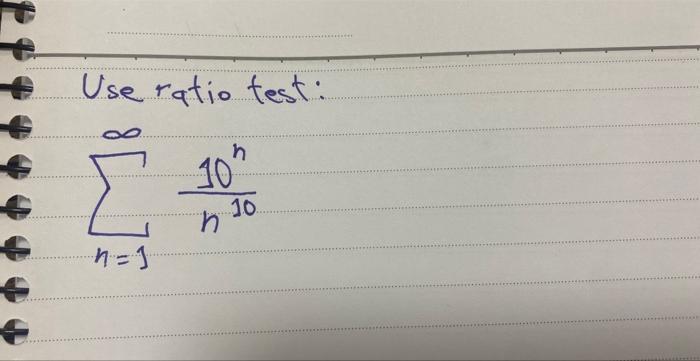 Use ratio test:
∞
Σ 10^n / n^10
n=1